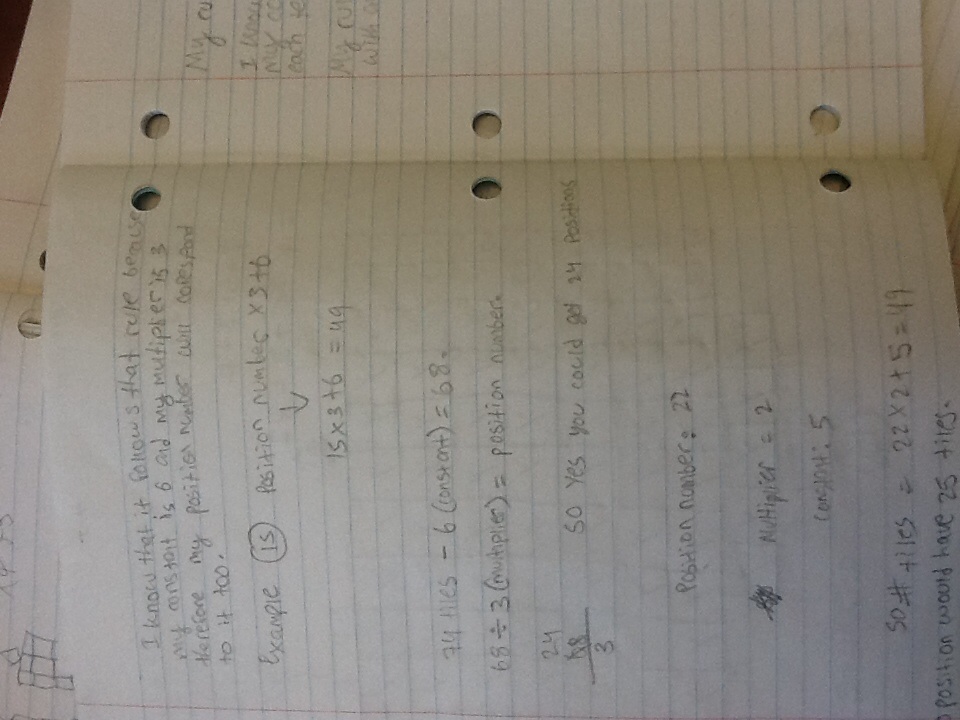 My ru
I know
my co
each te
My rul
with a
I know that it follows that rule because
my constant is 6 and my multiplier is 3
therefore my position number will corespond
to it too.
Example 15 position number x3+6
↓
15 x 3 + 6 = 49
74 tiles - 6 (constant) = 68.
68 ÷ 3 (multiplier) = position number.
24
68
3
so yes you could get 24 positions
Position number: 22
Multiplier = 2
constant: 5
so # tiles = 22 x 2 + 5 = 49
position would have 25 tiles.